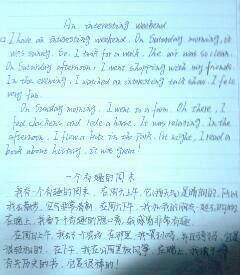 An interesting weekend
I have an interesting weekend. On Saturday morning, it
was sunny. So, I took for a walk. The air was so clean.
On Saturday afternoon, I went shopping with my friends.
In the evening, I watched an interesting talk show. I felt
very fun.
On Sunday morning, I went to a farm. On there, I
fed chickens and rode a horse. It was relaxing. In the
afternoon, I flew a kite in the park. In night, I read a
book about history, it was great!
一个有趣的周末
我有一个有趣的周末。在周六上午,它是晴朗的。
我去散步。空气非常清新。在周六下午,我和我的朋友
在晚上,我看了个有趣的脱口秀。我感觉非常有趣
在周日上午,我去了个农场。在那里,
很放松的。在下午,我在公园里放风筝。在晚上,我读了
有关历史的书,它是很棒的!